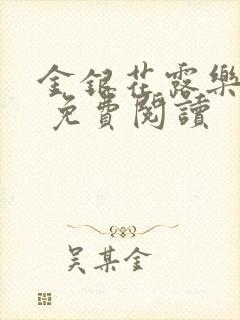 金銀花露樂
免費閱讀
吴某金